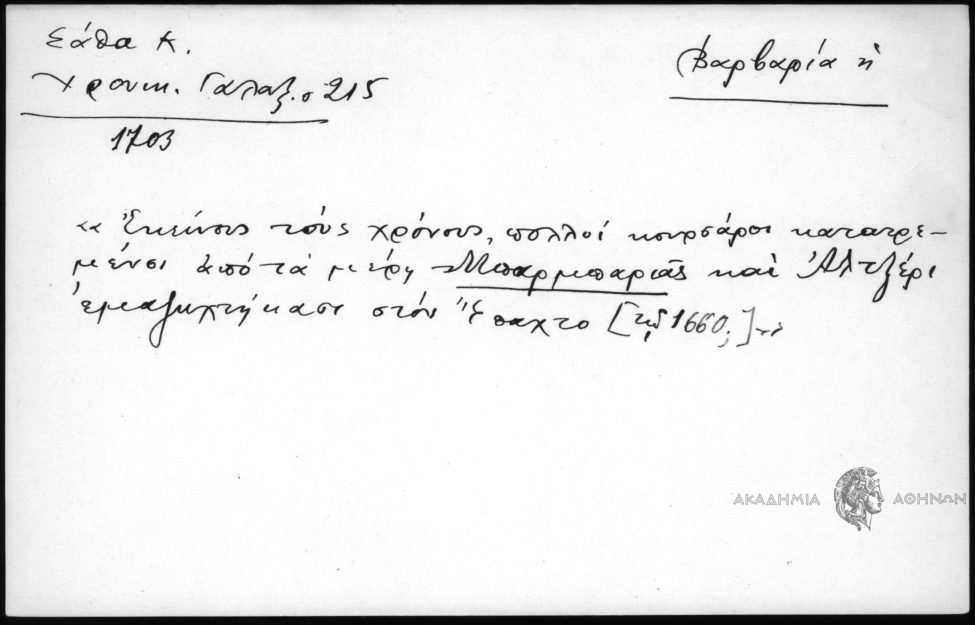 Σάθα Κ.
Χρονικ. Γαλαξ. σ 215
1703
Βαρβαρία ἡ
« Ἐκείνους τούς χρόνους, πολλοί κουρσάροι κατατρε-
μένοι ἀπό τά μέρη Μπαρμπαριᾶς καί Ἀλτζέρι
ἐμαζωχτήκασι στόν Ἔπαχτο [τῷ 1660;]»
ΑΚΑΔΗΜΙΑ ΑΘΗΝΩΝ